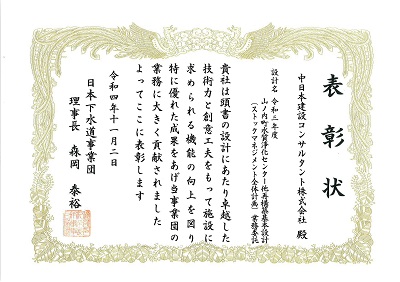 表彰状
中日本建設コンサルタント株式会社 殿
設計名 令和三年度
山ノ内町水質浄化センター他再構築基本設計
（ストックマネジメント全体計画）業務委託
貴社は頭書の設計にあたり卓越した
技術力と創意工夫をもって施設に
求められる機能の向上を図り
特に優れた成果をあげ当事業団の
業務に大きく貢献されました
よってここに表彰します
令和四年十一月二日
日本下水道事業団
理事長 森岡 泰裕